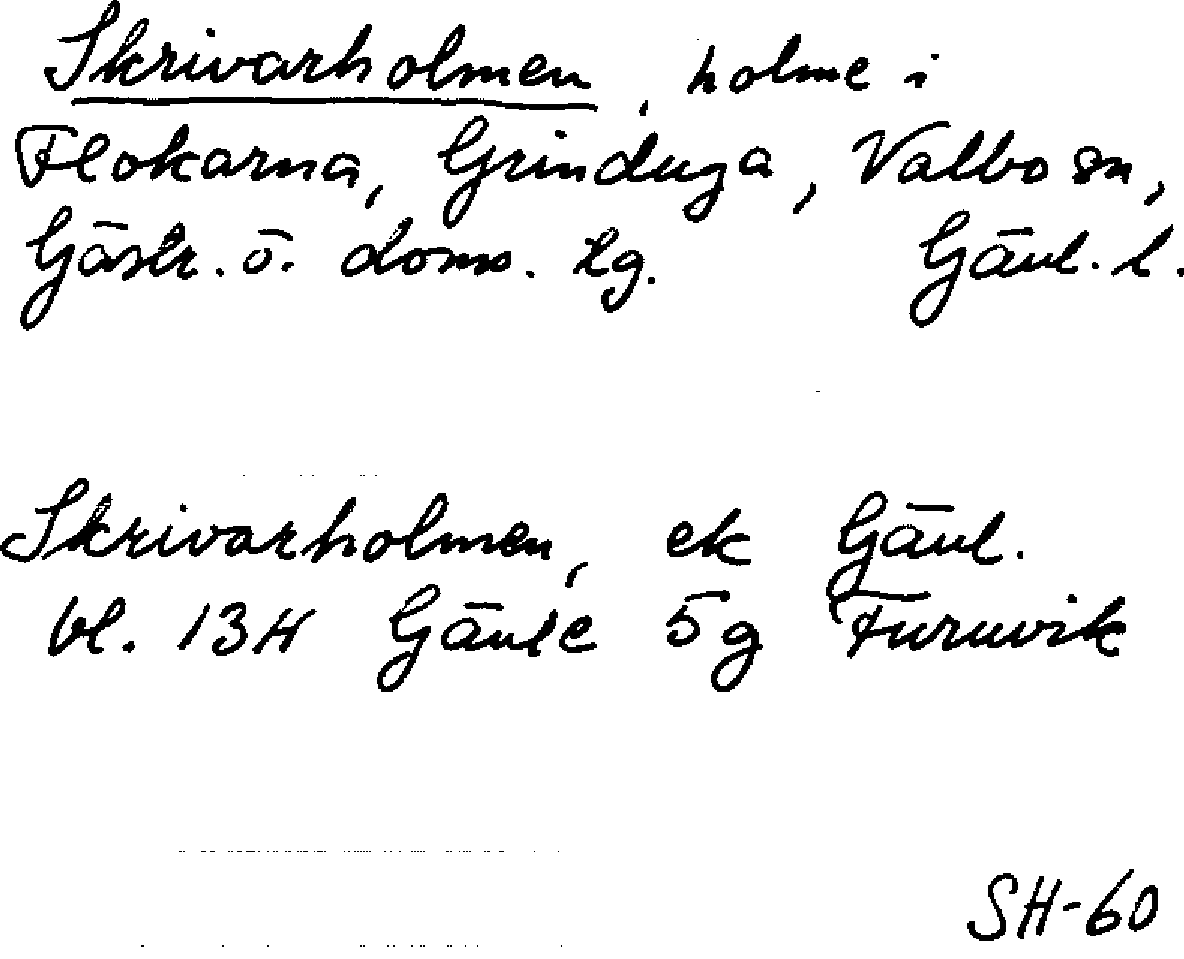 Skrivarholmen, holme i
Flokarna, Grinduga, Valbo sn,
Gästr. ö. doms. tg. Gävl. l.
Skrivarholmen, ek Gävl.
bl. 13H Gävle 5g Furuvik
SH-60